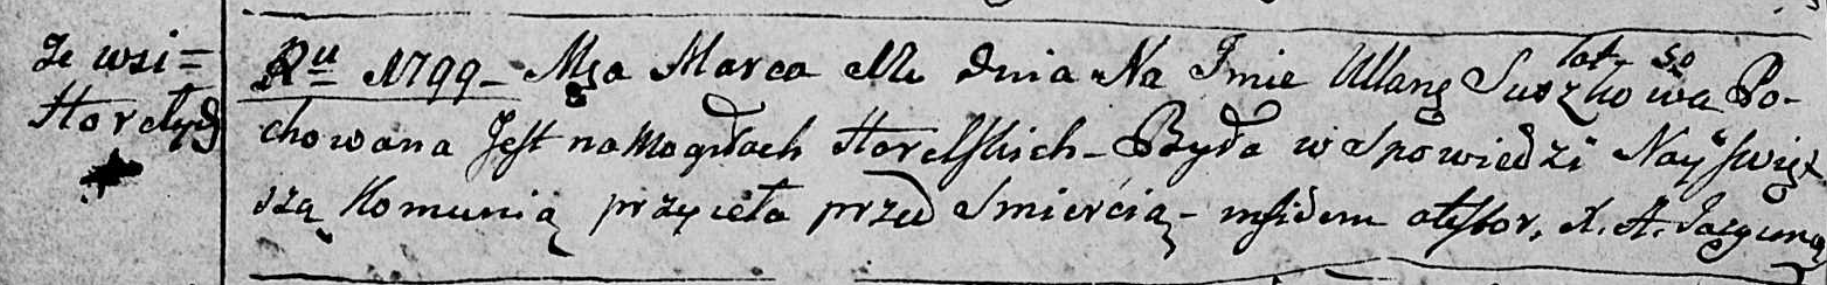 Ze wsi =
Horelyȩ
Ru 1799 - Mca Marca 12 dnia Na Imie Ullanȩ Suszkowa lat 50 Po-
chowana Jest na Mogiłach Horelskich - Była w Spowiedzi Nayświęt
szą Komunią przyieła przed Smiercią - in fidem atestor, X. A.